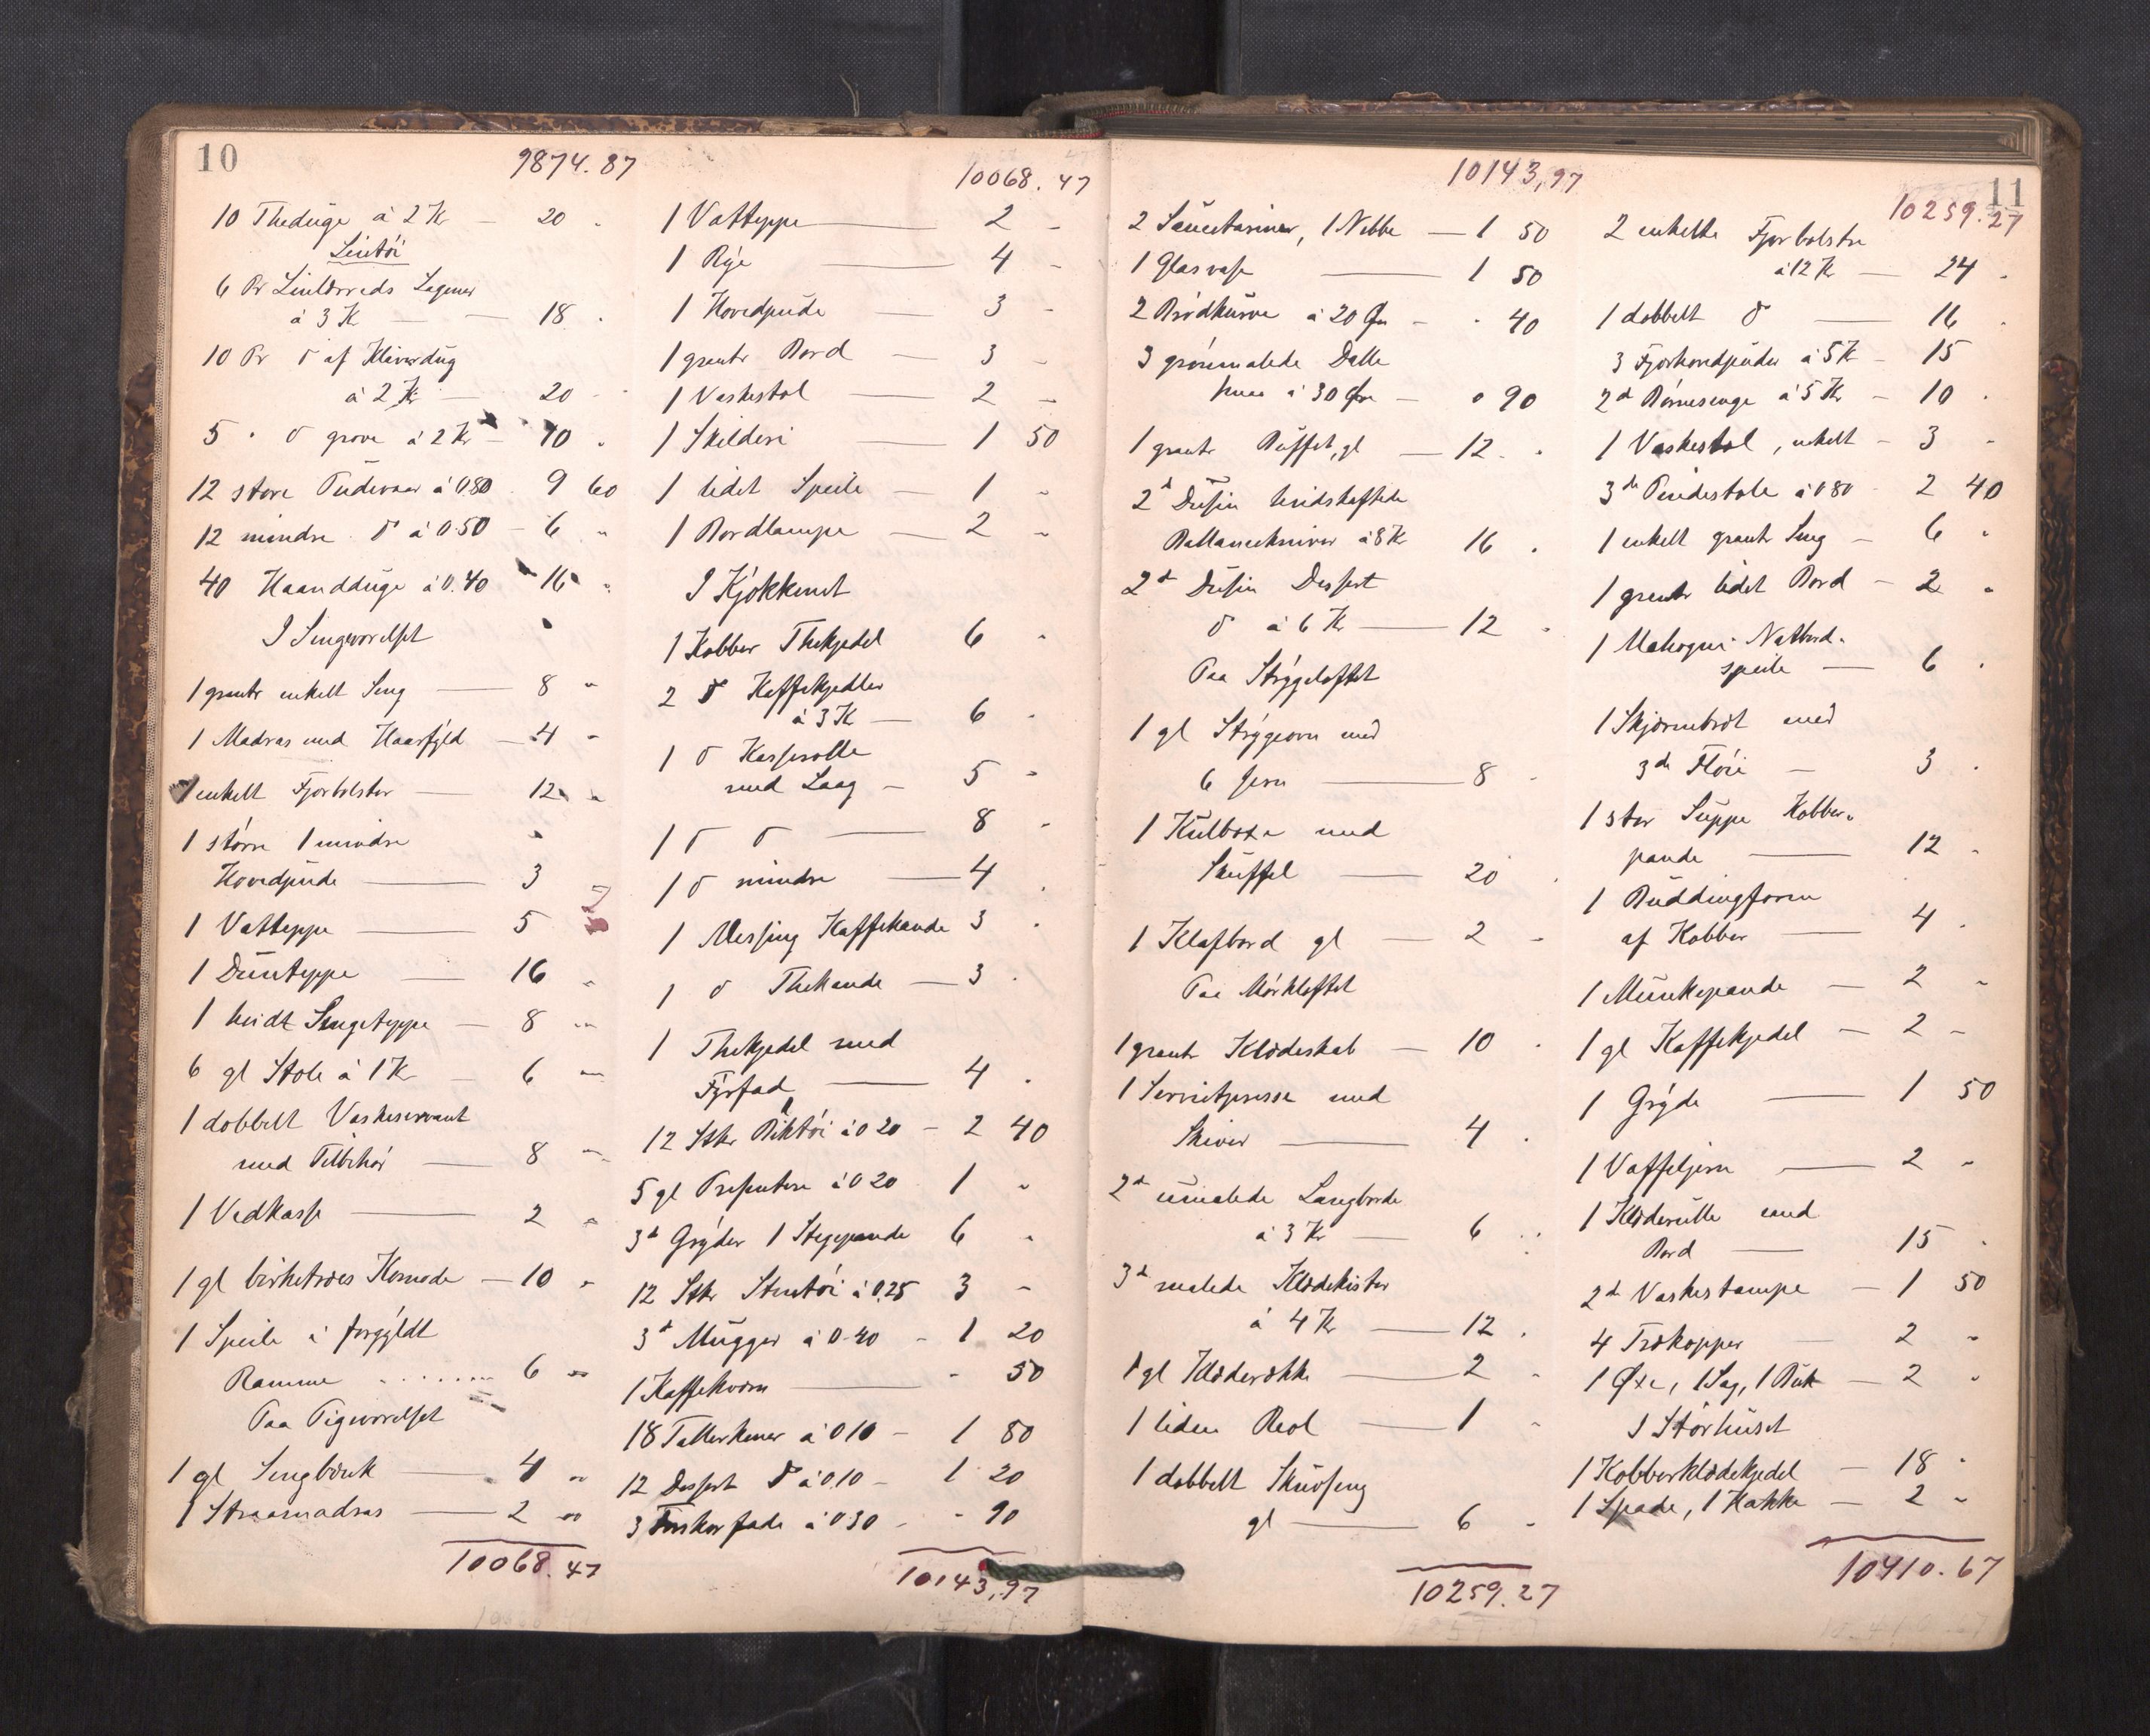 10
9874.87
10 Theduge à 2 Kr — 20 "
Lintöi
6 Pr Linlærreds Lagener
à 3 Kr — 18 "
10 Pr do af Kliverdug
à 2 Kr — 20 "
5 " do grove à 2 Kr — 10 "
12 store Pudevaar à 0.80 9 60
12 mindre do à 0.50 — 6 "
40 Haandduge à 0.40 16 "
I Sengeværelset
1 grantr enkelt Seng — 8 "
1 Madras med Haarfyld — 4 "
1 enkelt Fjorbolster — 12 "
1 större 1 mindre
Hovedpude — 3
1 Vatteppe — 5
1 Dunteppe — 16 "
1 hvidt Sengeteppe — 8 "
6 gl Stole à 1 Kr — 6 "
1 dobbelt Vaskeservant
med Tilbehör — 8 "
1 Vedkasse — 2 "
1 gl birketræes Komode — 10 "
1 Speile i forgyldt
Ramme ....... 6 "
Paa Pigeværelset
1 gl Sengbænk — 4 "
1 Straamadras — 2 "
10068.47
10068.47
1 Vatteppe — 2 "
1 Rye — 4 "
1 Hovedpude — 3 "
1 grantr Bord — 3 "
1 Vaskestol — 2 "
1 Skilderi — 1 50
1 lidet Speile — 1 "
1 Bordlampe — 2 "
I Kjøkkenet
1 Kobber Thekjedel 6 "
2 do Kaffekjedler
à 3 Kr — 6 "
1 do Kasserolle
med Laag — 5 "
1 do do — 8 "
1 do mindre — 4 "
1 Messing Kaffekande 3 "
1 do Thekande — 3 "
1 Thekjedel med
Fyrfad — 4 "
12 Stkr Bliktöi à 0 20 — 2 40
5 gl Presenterer à 0 20 1 "
3de Gryder 1 Stegepande 6 "
12 Stkr Stentöi à 0.25 3 "
3de Mugger à 0.40 — 1 20
1 Kaffekværn — " 50
18 Tallerkener à 0 10 — 1 80
12 Dessert do à 0.10 — 1 20
3 Fiskefade à 0 30 — " 90
10143,97
10143,97
11
2 Saucetariner, 1 Nebbe — 1 50
1 Glasvase — 1 50
2 Brödkurve à 20 Øre — " 40
3 grönmalede Dalle
huer à 30 Øre — " 90
1 grantr Buffet, gl — 12 "
2de Dusin hvidskaftede
Ballanceknive à 8 Kr 16 "
2de Dusin Dessert
do à 6 Kr — 12 "
Paa Strygeloftet
1 gl Strygeovn med
6 Jern — 8 "
1 Kulboxe med
Skuffel — 20 "
1 Klafbord gl — 2 "
Paa Mörkloftet
1 grantr Klædeskab — 10 "
1 Servietpresse med
Skiver — 4 "
2de umalede Langborde
à 3 Kr — 6 "
3de malede Klædekister
à 4 Kr — 12 "
1 gl Klæderække — 2 "
1 liden Reol — 1 "
1 dobbelt Skuvseng
gl — 6 "
10259.27
10259.27
2 enkelte Fjorbolstre
à 12 Kr — 24 "
1 dobbelt do — 16 "
3 Fjorhovedpuder à 5 Kr — 15
2de Börnesenge à 5 Kr — 10 "
1 Vaskestol, enkelt — 3 "
3de Pindestole à 0 80 — 2 40
1 enkelt grantr Seng — 6 "
1 grantr lidet Bord — 2 "
1 Mahogni Natbord.
speile — 6 "
1 Skjærmbræt med
3de Flöie — 3 "
1 stor Suppe Kobber"
pande — 12 "
1 Buddingform
af Kobber — 4 "
1 Munkepande — 2 "
1 gl Kaffekjedel — 2 "
1 Gryde — 1 50
1 Vaffeljern — 2 "
1 Klæderulle med
Bord — 15 "
2de Vaskestampe — 1 50
4 Trækopper — 2 "
1 Øxe, 1 Sag, 1 Buk — 2 "
I Störhuset
1 Kobberklædekjedel — 18 "
1 Spade, 1 Hakke — 2 "
10410.67